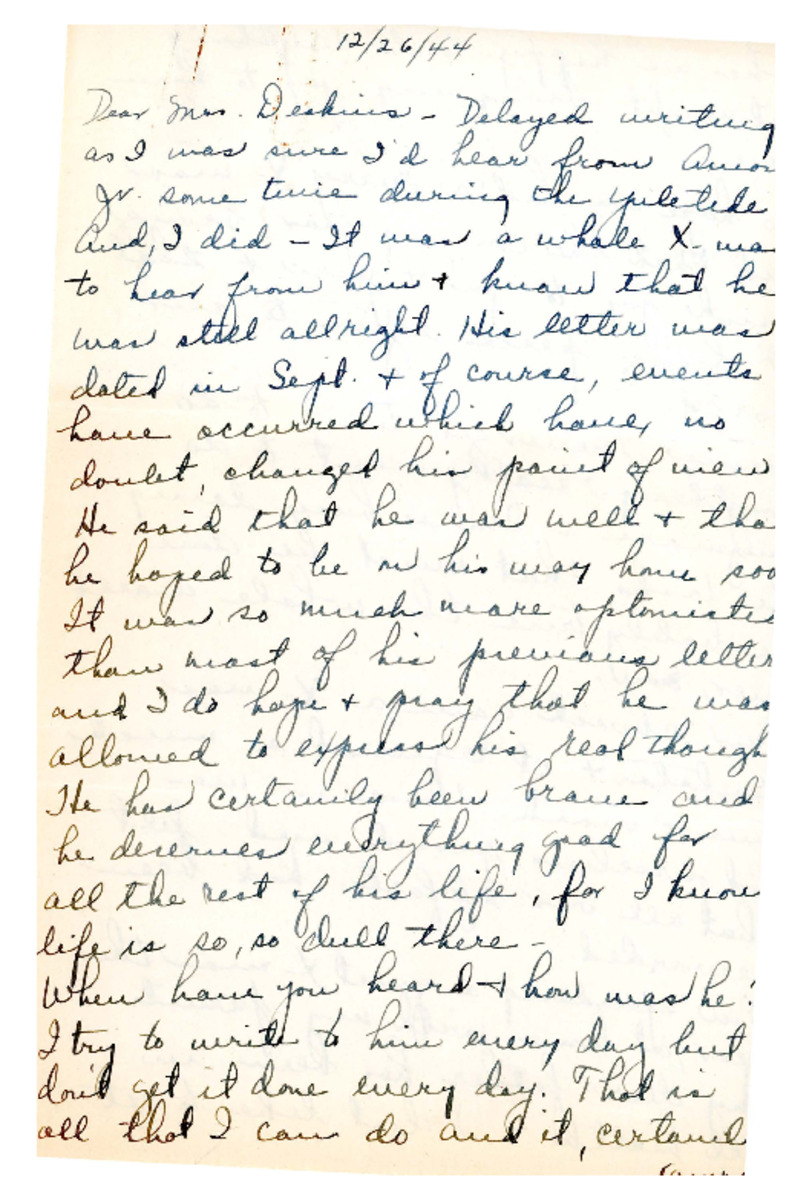 12/26/44
Dear Mrs. Deskins - Delayed writing
as I was sure I'd hear from Amon
Jr. some time during the yuletide
And, I did - It was a whole X-ma
to hear from him + know that he
was still allright. His letter was
dated in Sept. + of course, events
have occurred which have, no
doubt, changed his point of view
He said that he was well + tha
he hoped to be on his way home soo
It was so much more optomistic
than most of his previous letter
and I do hope + pray that he was
allowed to express his real though
He has certainly been brave and
he deserves everything good for
all the rest of his life, for I know
life is so, so dull there -
When have you heard + how was he?
I try to write to him every day but
don't get it done every day. That is
all that I can do and it, certainl